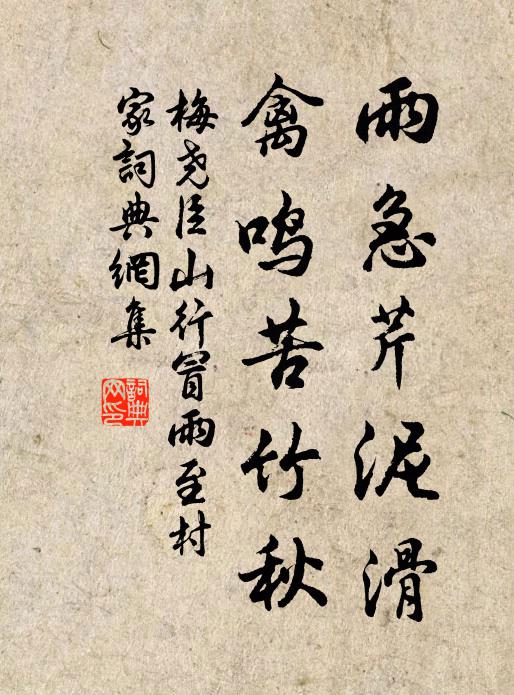 雨急芹泥滑
禽鳴苦竹秋
梅尧臣山行冒雨至村
家詞典網集
詞典网印